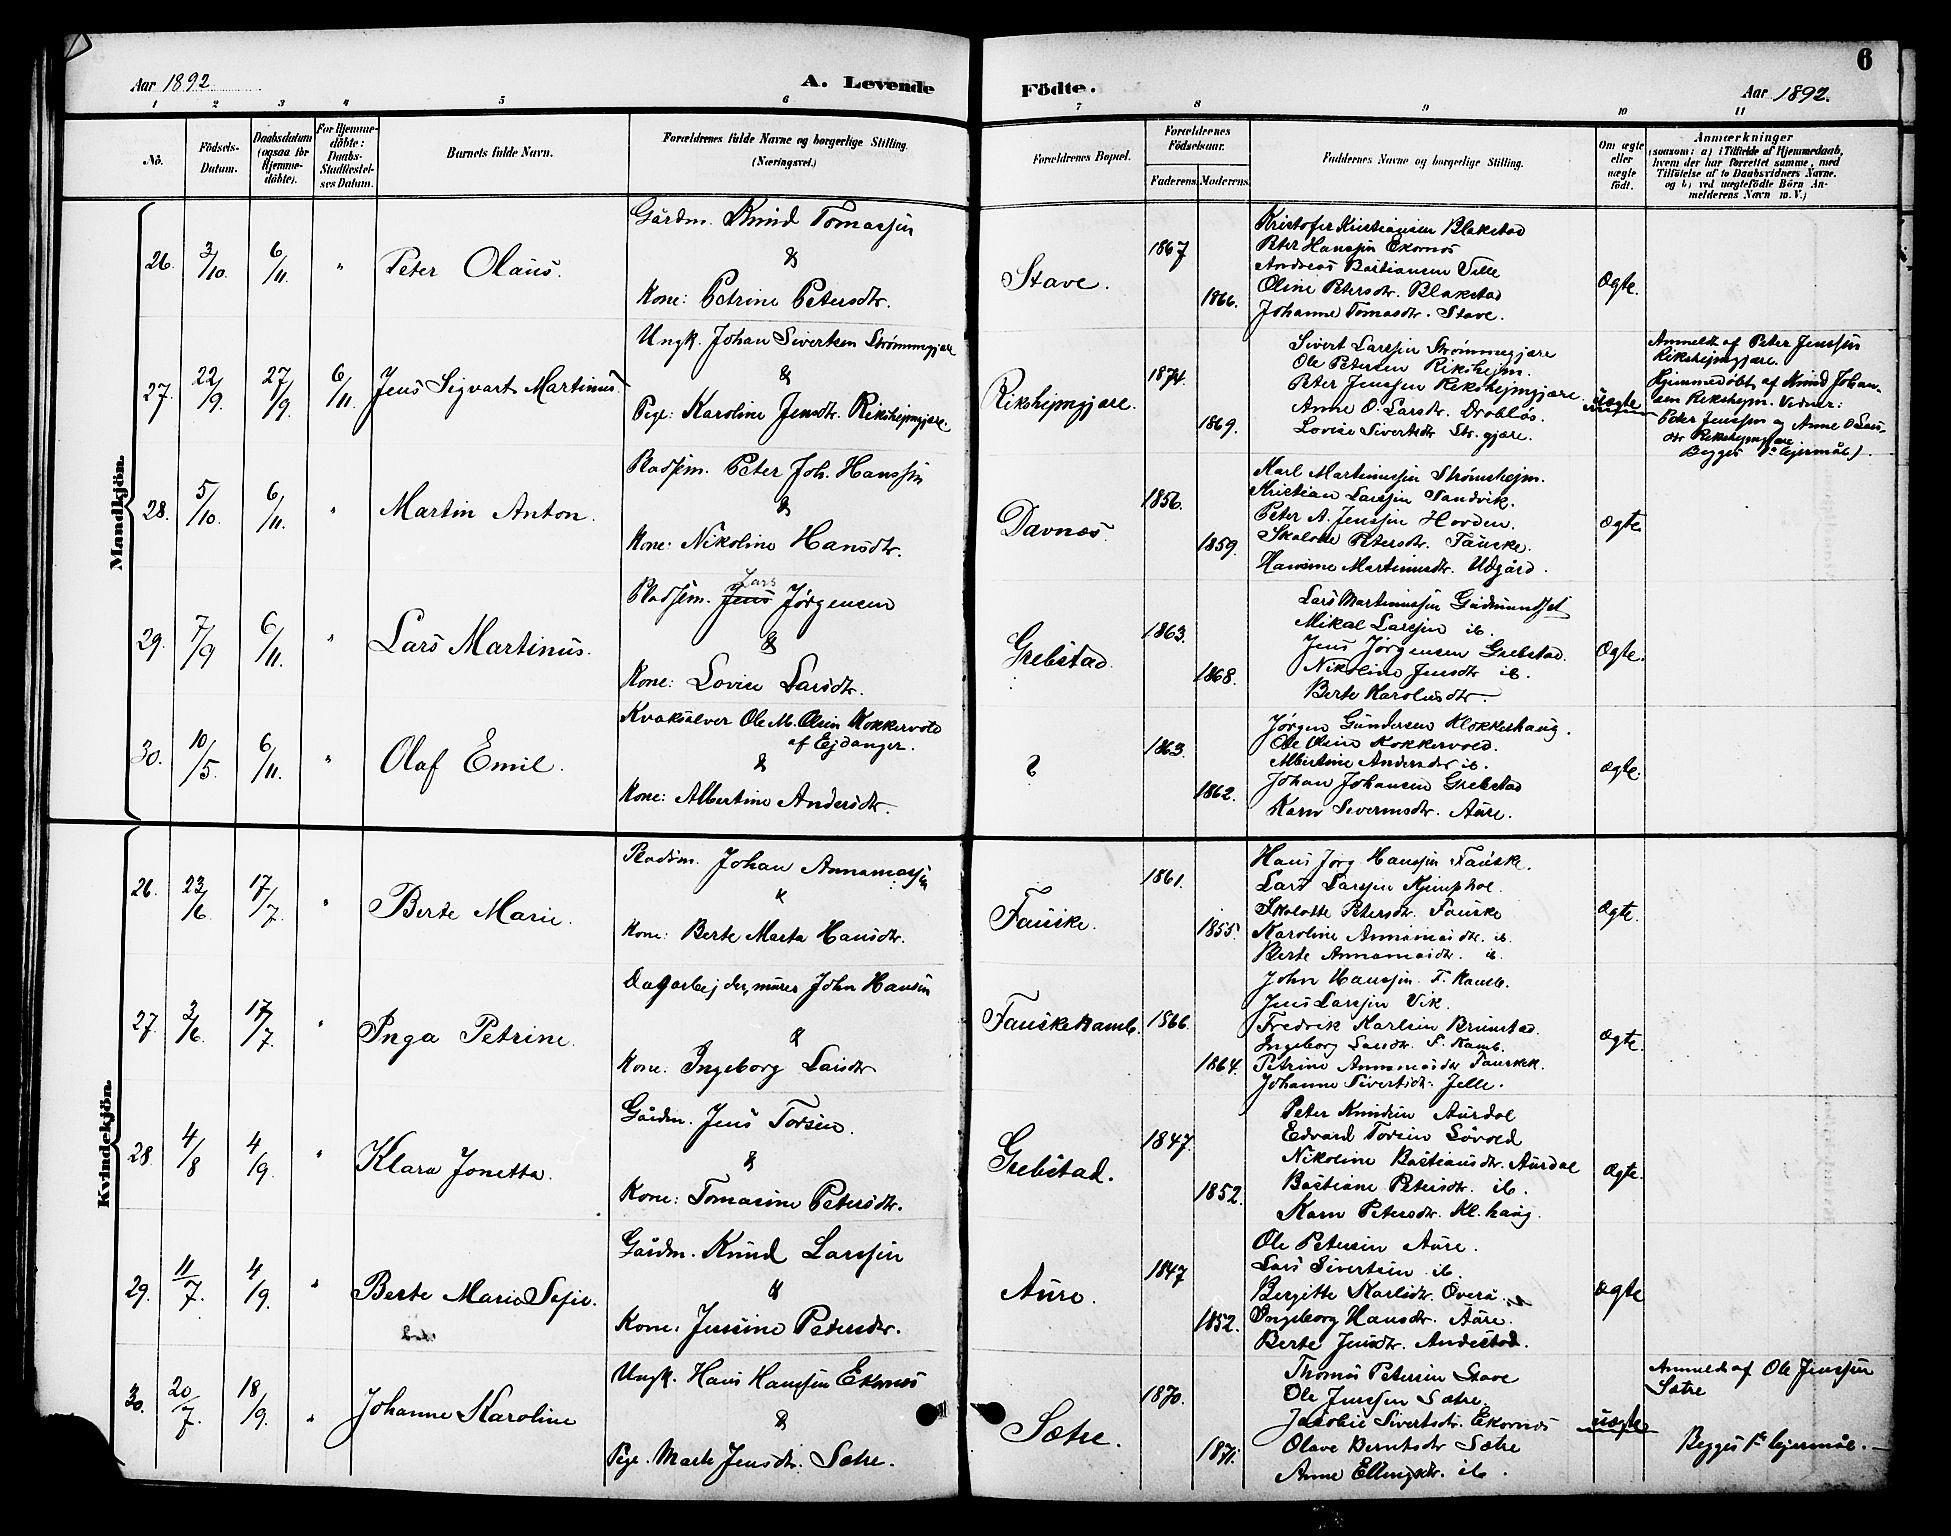 Aar 1892.
A. Levende
Födte.
Aar 1892.
6
1 2 3 4 5 6 7 8 9 10 11
No.
Födsels-
Datum.
Daabsdatum
(ogsaa for
Hjemme-
döbte).
For Hjemme-
döbte:
Daabs-
Stadfæstel-
ses Datum.
Barnets fulde Navn.
Forældrenes fulde Navne og borgerlige Stilling.
(Næringsvei.)
Forældrenes Bopæl.
Forældrenes
Födselsaar.
Faderens. Moderens.
Faddernes Navne og borgerlige Stilling.
Om ægte
eller
uægte
födt.
Anmærkninger
(saasom: a) i Tilfælde af Hjemmedaab,
hvem der har forrettet samme, med
Tilföielse af to Daabsvidners Navne.
og b) ved uægtefödte Börn An-
melderens Navn m. V.)
Mandkjön.
26. 3/10. 6/11. " Peter Olaus.
Gårdm. Knud Tomassen
&
Kone: Petrine Petersdtr.
Stave.
1867
1866.
Kristofer Kristiansen Blakstad
Peter Hanssen Ekornes
Andreas Bastiansen Velle
Oline Petersdtr. Blakstad
Johanne Tomasdtr. Stave.
Ægte.
27. 22/9. 27/9. 6/11. Jens Sigvart Martinus.
Ungk. Johan Sivertsen Strømmegjære
&
Pige: Karoline Jensdtr. Rikshejmgjære.
Rikshejmgjære.
1874.
1869.
Sivert Larssen Strømmegjære
Ole Petersen Rikshejm.
Peter Jenssen Rikshejmgjære.
Anne O. Larsdtr. Drabløs.
Lovise Sivertsdtr Str. gjære.
uægte
Anmeldt af Peter Jenssen
Rikshejmgjære.
Hjemmedøbt af Knud Johan-
sen Rikshejm. Vidner:
Peter Jenssen og Anne O Lars-
dtr Rikshejmgjære.
Begges 1ste lejermål).
28. 5/10. 6/11. " Martin Anton.
Pladsem. Peter Joh. Hanssen
&
Kone: Nikoline Hansdtr.
Davnes.
1856.
1859.
Karl Martinussen Strømshejm.
Kristian Larssen Tandvik.
Peter A. Jenssen Hovden.
Skolotte Petersdtr. Fauske.
Hansine Martinusdtr. Udgård.
Ægte
29. 7/9 6/11. " Lars Martinus.
Pladsem. Jens Lars Jørgensen
&
Kone: Lovise Larsdtr.
Grebstad.
1863.
1868.
Lars Martinussen Gudmundset
Mikal Larssen ib.
Jens Jørgensen Grebstad.
Nikoline Jensdtr ib.
Berte Karolusdtr
Ægte.
30. 10/5. 6/11. " Olaf Emil.
Kvaksalver Ole M. Olsen Kokkervold
af Ejdanger.
&
Kone: Albertine Andersdtr.
?
1863.
1862.
Jørgen Gundersen Klokkehaug.
Ole Olsen Kokkervold.
Albertine Andersdtr ib.
Johan Johansen Grebstad
Karn Siversdtr. Aure.
Ægte.
Kvindekjön.
26. 23/6. 17/7. " Berte Marie.
Pladsm. Johan Annanias
&
Kone: Berte Marta Hansdtr.
Fauske.
1861.
1855.
Hans Jørg Hanssen Fauske.
Lars Larssen
Skolotte Petersdtr. Fauske
Karoline Annaniasdtr. ib.
Berte Annaniasdtr. ib.
Ægte.
27. 2/6. 17/7. " Inga Petrine.
Dagarbejder, murer John Hansen
&
Kone: Ingeborg Larsdtr
Fauskekamb.
1866.
1864.
John Hanssen F. Kamb.
Jens Larssen Vik.
Fredrik Karlsen Brunstad.
Ingeborg Larsdtr. F. Kamb.
Petrine Annaniasdtr Fauskek.
Johanne Sivertsdtr. Jelle.
Ægte.
28. 4/8 4/9. " Klara Jonetta.
Gårdm. Jens Torsen.
&
Kone: Tomasine Petersdtr.
Grebstad.
1847.
1852.
Peter Knudsen Aurdal
Edvard Torsen Søvold
Nikoline Bastiansdtr. Aurdal
Bastiane Petersdtr. ib.
Karn Petersdtr. Kl. haug.
Ægte.
29. 11/7. 4/9. " Berte Marie Sefie.
Gårdm. Knud Larssen
&
Kone. Jensine Pedersdtr.
Aure.
1847
1852.
Ole Petersen Aure.
Lars Sivertsen ib.
Bergitte Karlsdtr. Overå.
Ingeborg Hansdtr. Aure.
Berte Jensdtr. Andestad.
Ægte
30. 20/7. 18/9. " Johanne Karoline
Ungk. Hans Hanssen Ekornes
&
Pige. Marte Jensdtr. Sætre.
Sætre.
1870.
1871.
Thomas Petersen Stave
Ole Jenssen Sætre.
Jacobie Sivertsdtr. Ekornes
Olave Berntsdtr Sætre
Anne Ellingsdtr. ib.
uægte
Anmeldt af Ole Jenssen
Sætre
Begges 1ste lejermål.